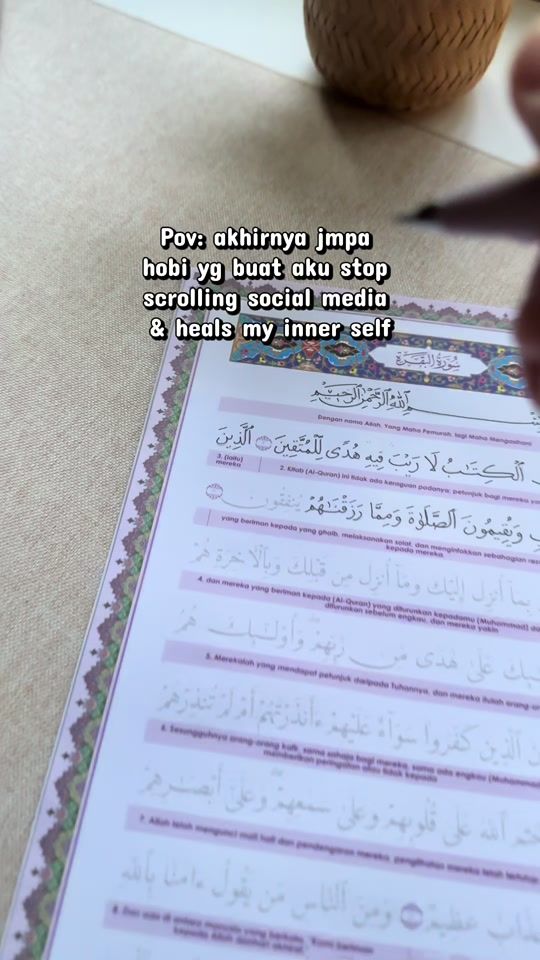 Pov: akhirnya jmpa
hobi yg buat aku stop
scrolling social media
& heals my inner self
سُورَةُ البَقَرَةِ
اللَّهِ الرَّحْمَٰنِ الرَّحِيمِ
Dengan nama Allah, Yang Maha Pemurah, lagi Maha Mengasihani
ٱلْكِتَٰبُ لَا رَيْبَ فِيهِ هُدًى لِّلْمُتَّقِينَ ٱلَّذِينَ
3. (Iaitu) mereka
2. Kitab (Al-Quran) ini tidak ada keraguan padanya; petunjuk bagi mereka
وَيُقِيمُونَ ٱلصَّلَوٰةَ وَمِمَّا رَزَقْنَٰهُمْ يُنفِقُونَ
yang beriman kepada yang ghaib, melaksanakan solat, dan menginfakkan sebahagian
kepada mereka.
بِمَآ أُنزِلَ إِلَيْكَ وَمَآ أُنزِلَ مِن قَبْلِكَ وَبِٱلْءَاخِرَةِ هُمْ
4. dan mereka yang beriman kepada (Al-Quran) yang diturunkan kepadamu (Muhammad)
diturunkan sebelum engkau, dan mereka yakin
عَلَىٰ هُدًى مِّن رَّبِّهِمْ وَأُو۟لَٰٓئِكَ هُمُ
5. Merekalah yang mendapat petunjuk daripada Tuhannya, dan mereka itulah
ٱلَّذِينَ كَفَرُوا۟ سَوَآءٌ عَلَيْهِمْ ءَأَنذَرْتَهُمْ أَمْ لَمْ تُنذِرْهُمْ
6. Sesungguhnya orang-orang kafir, sama sahaja bagi mereka, sama ada engkau (Muhammad)
memberikan peringatan atau tidak kepada
ٱللَّهُ عَلَىٰ قُلُوبِهِمْ وَعَلَىٰ سَمْعِهِمْ وَعَلَىٰٓ أَبْصَٰرِهِمْ
7. Allah telah mengunci mati hati dan pendengaran mereka, penglihatan mereka telah tertutup
عَذَابٌ عَظِيمٌ وَمِنَ ٱلنَّاسِ مَن يَقُولُ ءَامَنَّا بِٱللَّهِ
8. Dan ada di antara manusia yang berkata,
kepada Allah